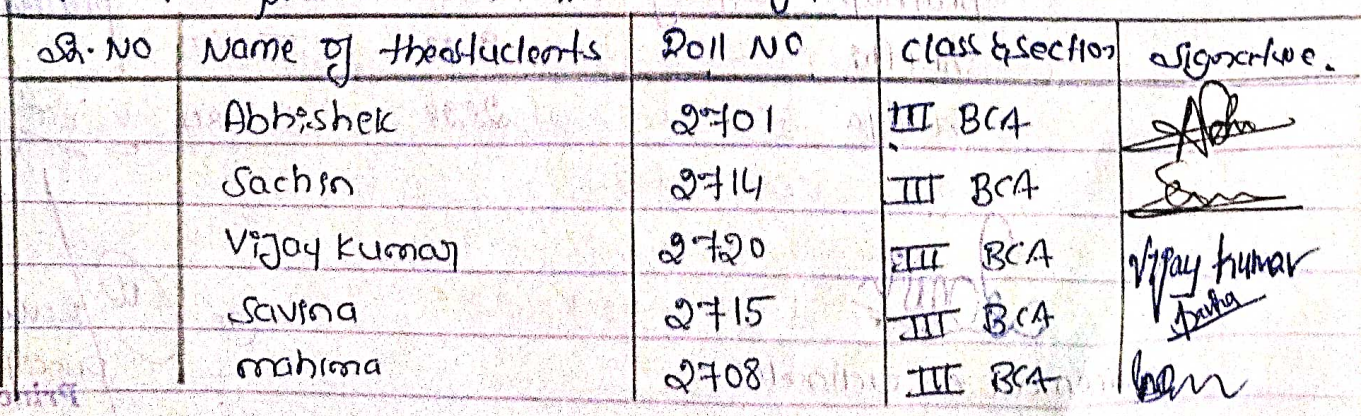 Sr. No Name of the students Roll No Class & Section Signature.
Abhishek 2701 III BCA
Sachin 2714 III BCA
Vijay Kumar 2720 III BCA Vijay Kumar
Savina 2715 III BCA
mahima 2708 III BCA